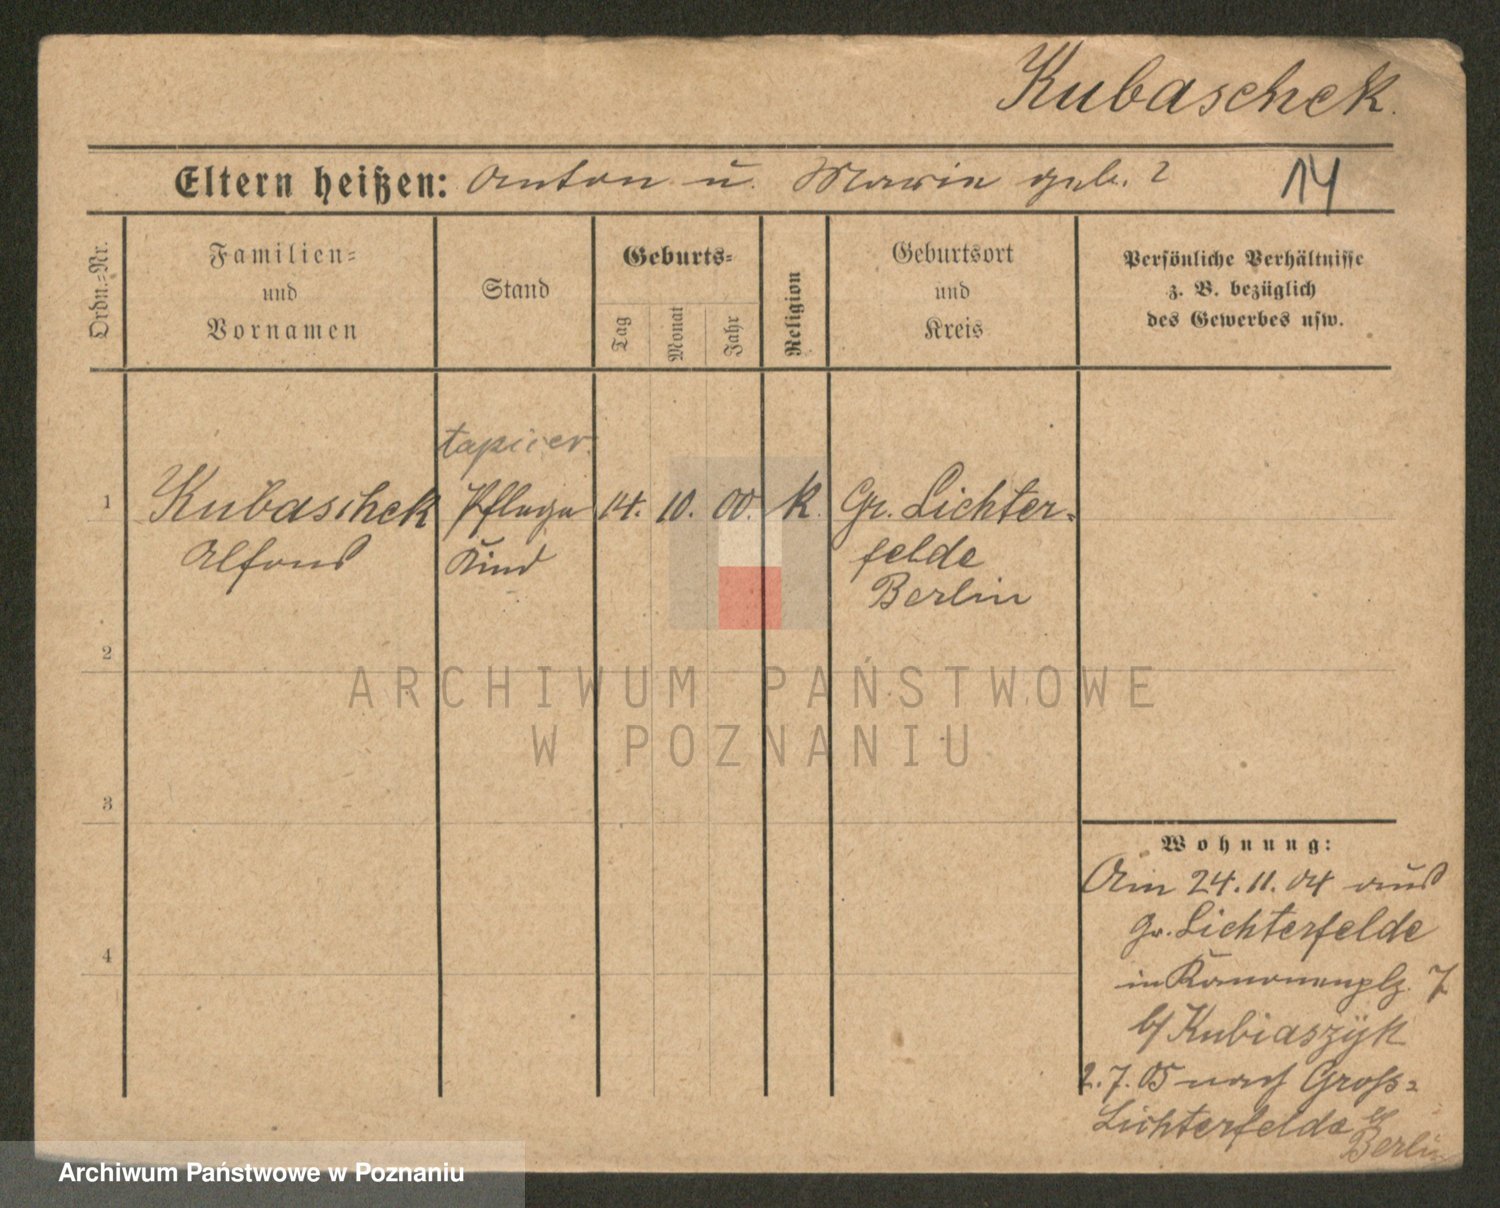 Kubaschek.
Eltern heißen: Anton u. Marie geb. ?
14
Ordn.-Nr.
Familien-
und
Vornamen
Stand
Geburts-
Tag
Monat
Jahr
Religion
Geburtsort
und
Kreis
Persönliche Verhältnisse
z. B. bezüglich
des Gewerbes usw.
1
Kubaschek
Alfons
Pflege
Kind
14. 10. 00. K.
Gr. Lichter-
felde
Berlin
2
3
4
Wohnung:
Am 24.11.04 aus
Gr. Lichterfelde
in Kanonenplz. 7
b/ Kubiaszÿk
2.7.05 nach Gross-
Lichterfelde
Berlin
ARCHIWUM PAŃSTWOWE
W POZNANIU
Archiwum Państwowe w Poznaniu